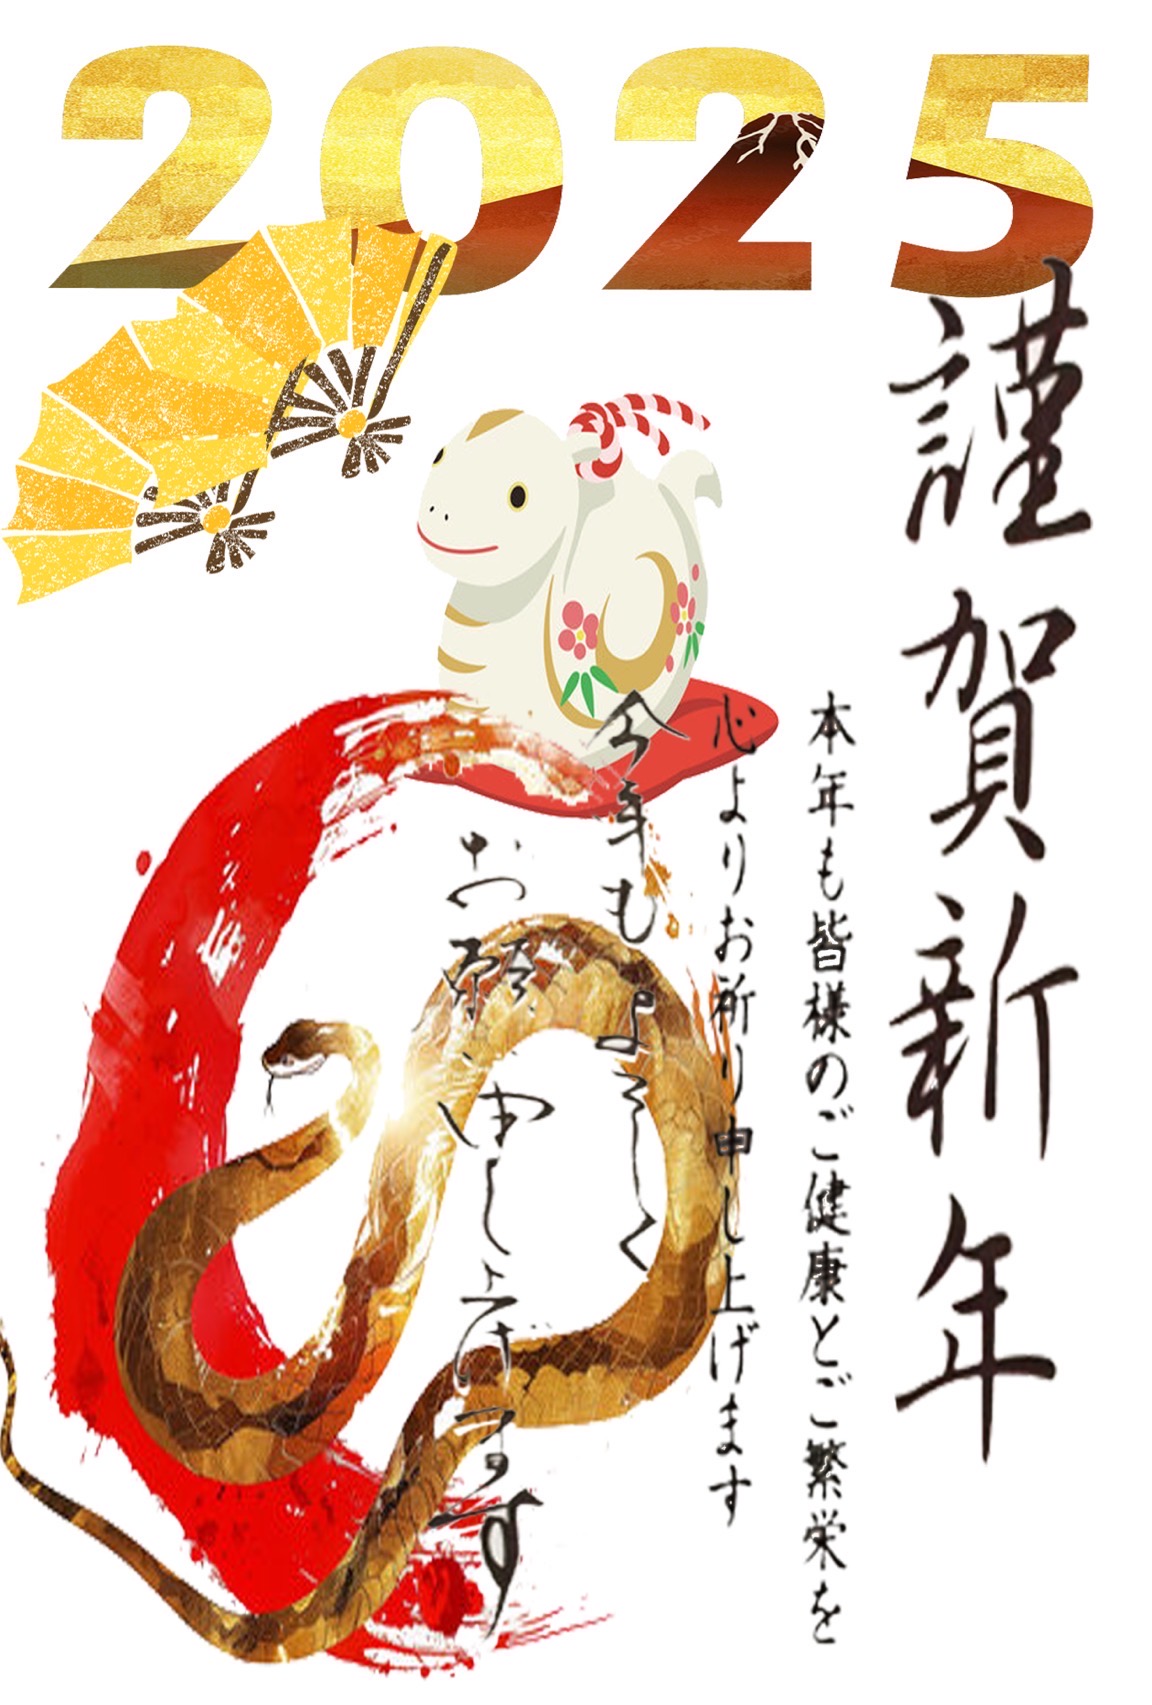 2025
謹賀新年
本年も皆様のご健康とご繁栄を
心よりお祈り申し上げます
今年もよろしく
お願い申し上げます